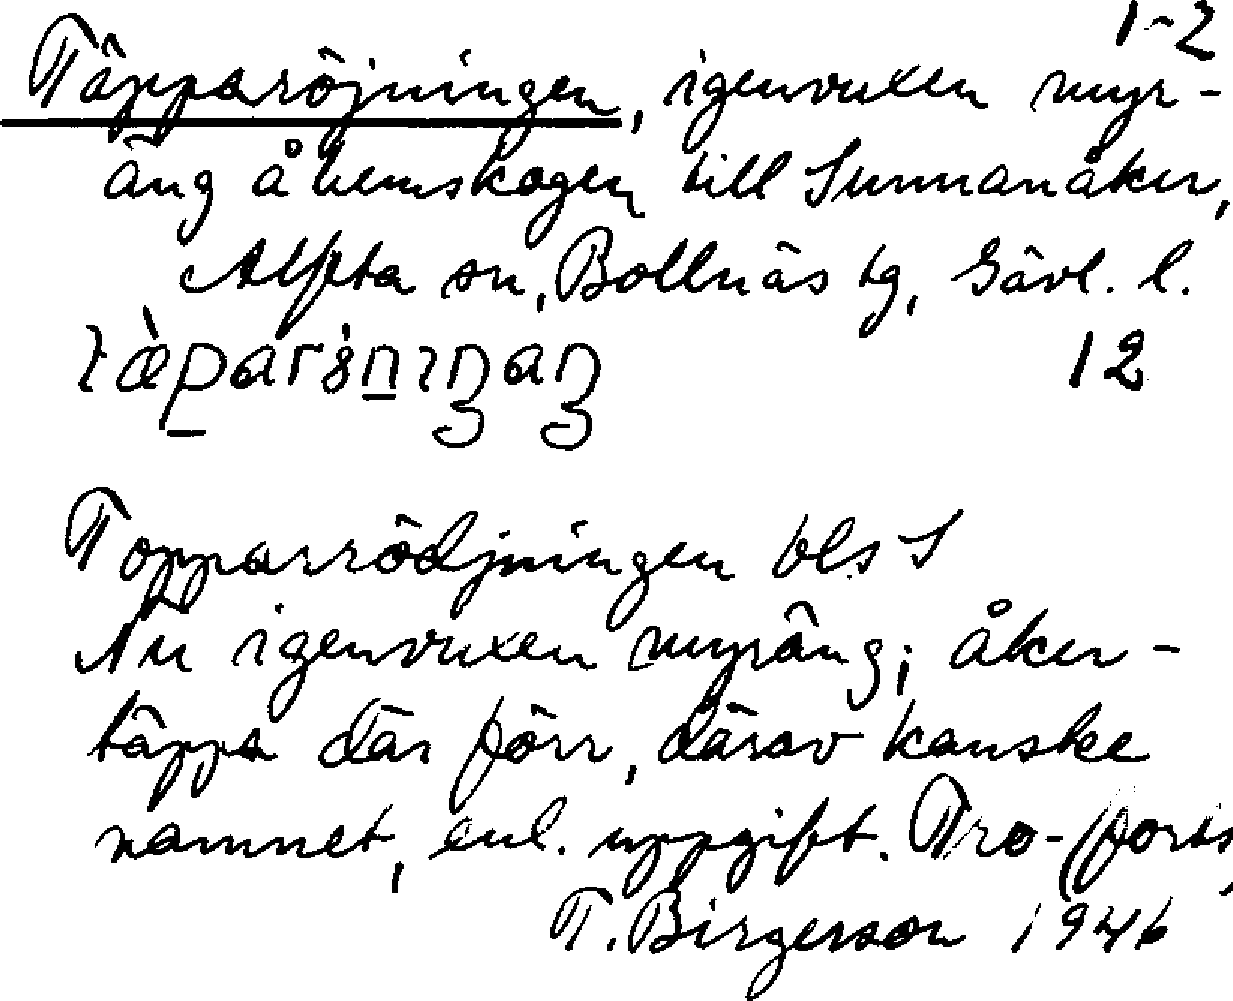 1-2
Täpparöjningen, igenvuxen myr-
äng å hemskogen till Sunnanåker,
Alfta sn, Bollnäs tg, Gävl. l.
12
Topparrödjningen bls S
Nu igenvuxen myräng; åker-
täppa där förr, därav kanske
namnet, enl. uppgift. Tro- (forts
T. Birgerson 1946